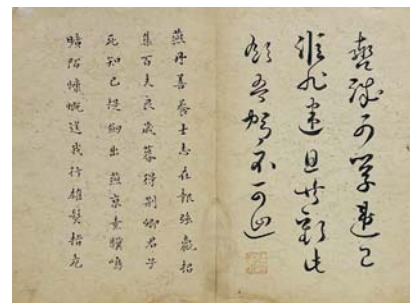 轡誠可學違己
詎非迷且共歡此
飲吾駕不可回
燕丹善養士志在報強嬴招
集百夫良歲暮得荊卿君子
死知己提劍出燕京素驥鳴
陌慷慨送我行雄髮指危